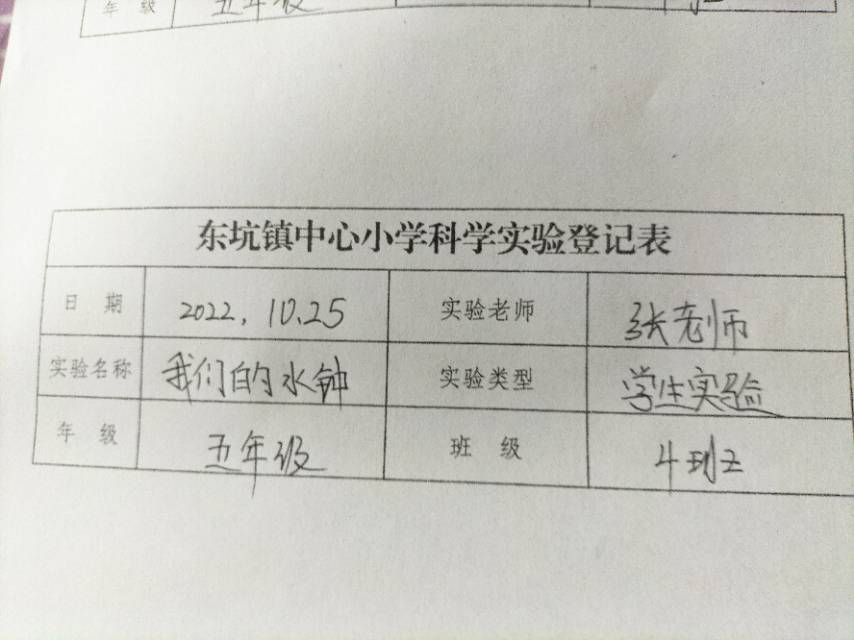 年 级 五年级
东坑镇中心小学科学实验登记表
日 期 2022.10.25 实验老师 张老师
实验名称 我们的水钟 实验类型 学生实验
年 级 五年级 班 级 4班